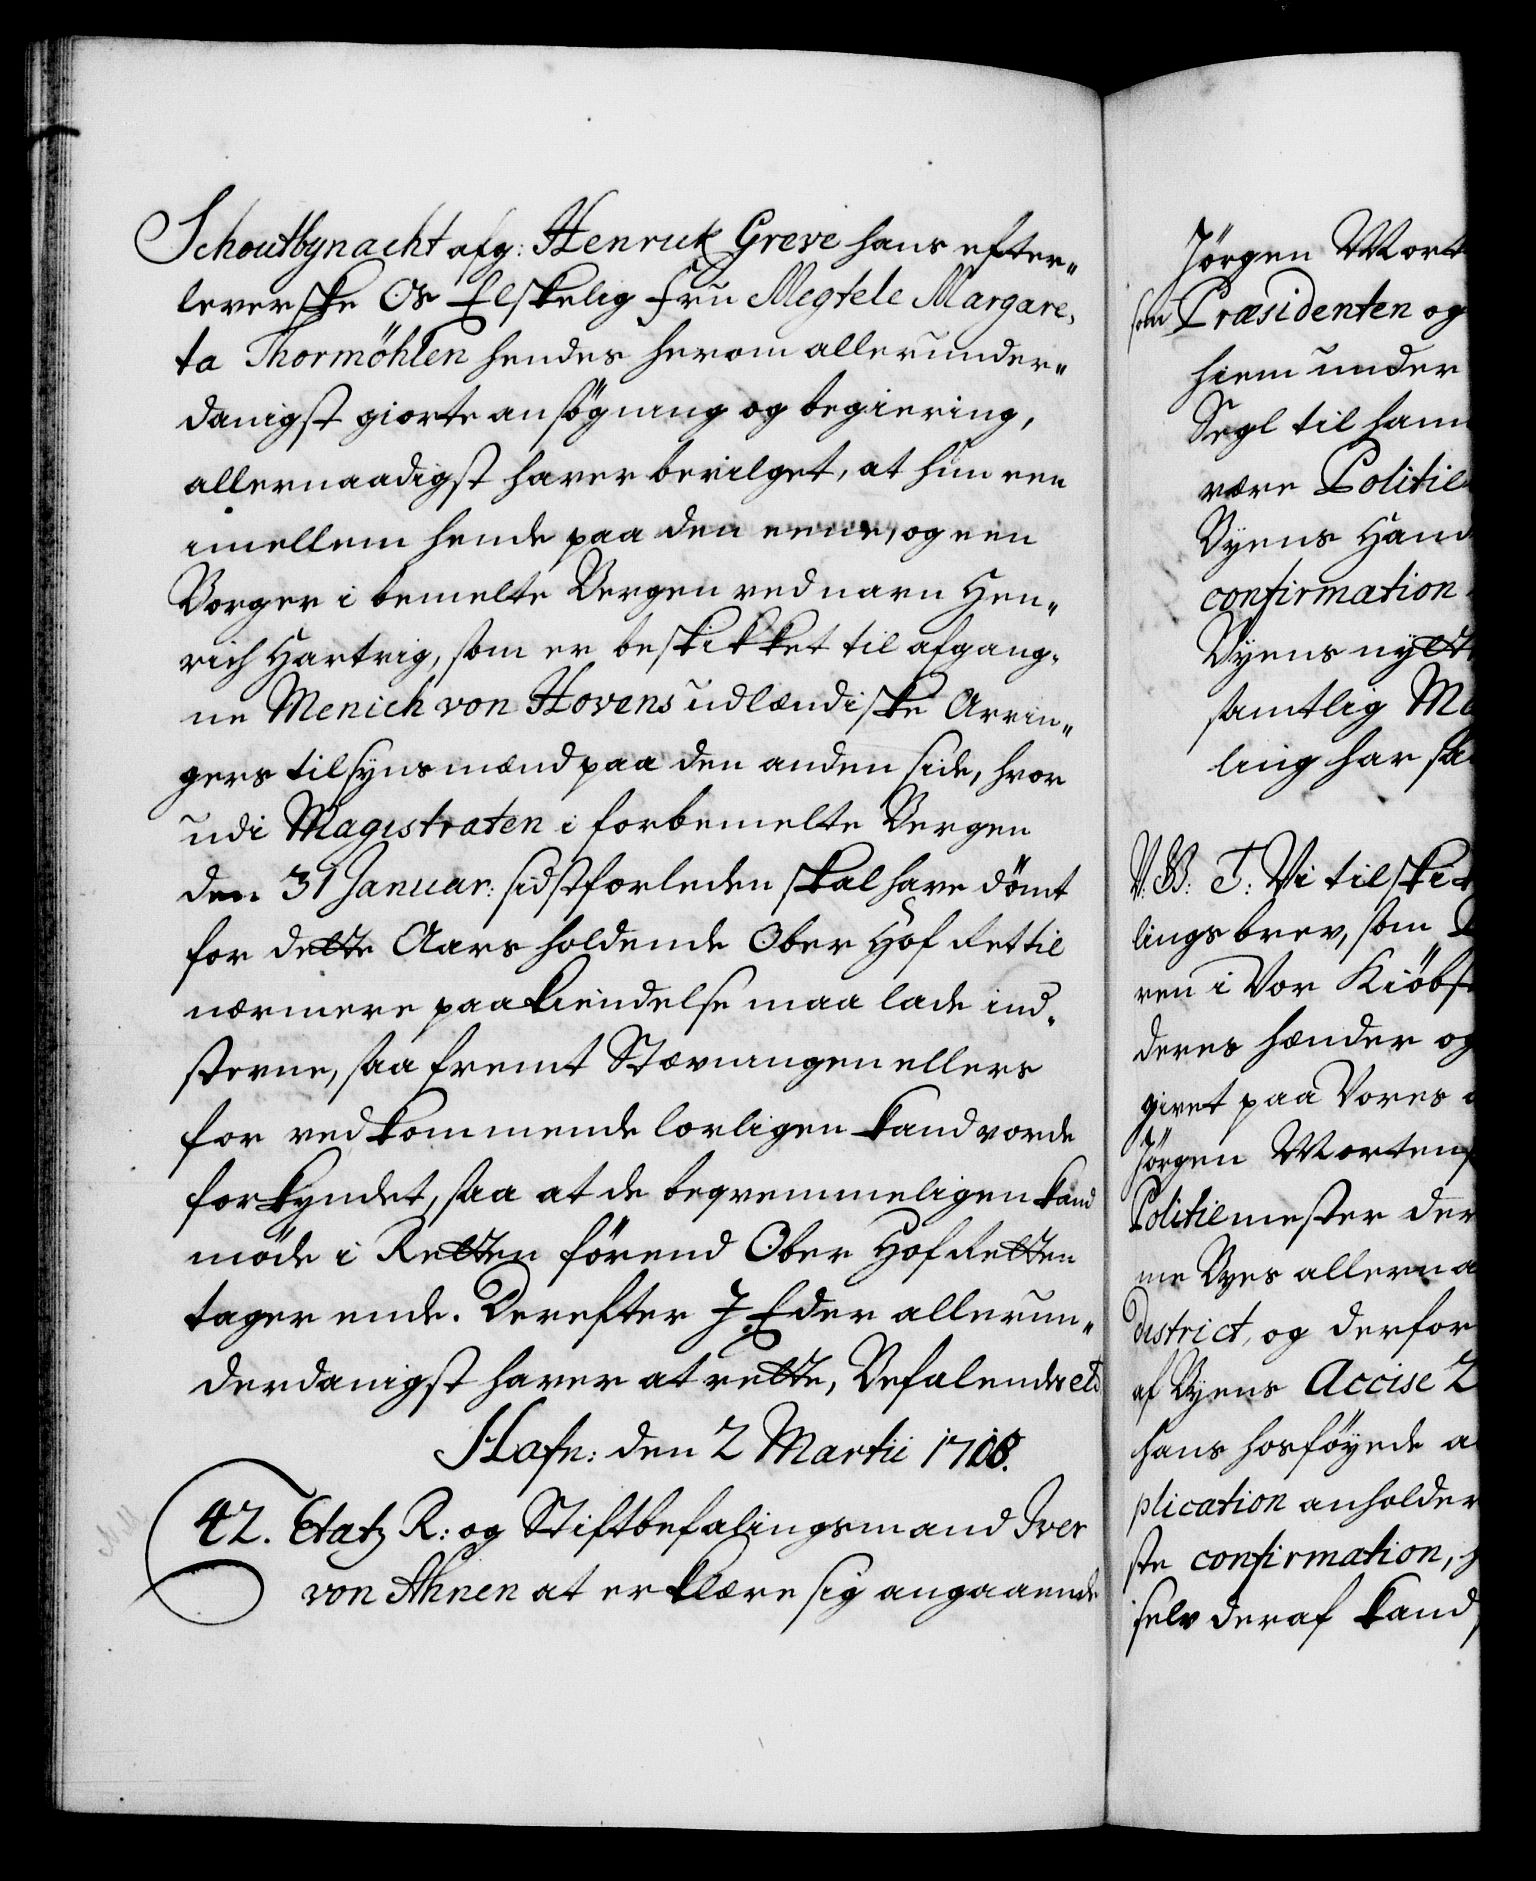 Schoutbynacht afg: Henrick Greve hans efter„
leverske Os Elskelig Fru Megtele Margare,
ta Thormöhlen hendes herom allerunder„
danigst giorte ansögning og begiering,
allernaadigst haver bevilget, at hun een
imellem hende paa den eene, og een
Borger i bemelte Bergen ved navn Hen„
rich Hartvig, som er beskikket til afgang„
ne Menich von Hovens udlændiske Arvin„
gers tilsynsmænd paa den anden side, hvor
udi Magistraten i forbemelte Bergen
den 31 Januar: sidstforleden skal have dömt
for dette Aars holdende Ober Hof Ret til
nærmere paakiendelse maa lade ind„
stevne, saa fremt Stævningen ellers
for vedkommende lovligen kand vorde
forkyndet, saa at de beqvemmeligen kand
möde i Retten förend Ober Hof Retten
tager ende. Derefter I Eder allerun„
derdanigst haver at rette, Befalendes etc
Hafn: den 2 Martii 1708.
42. Etatz R: og Stiftbefalingsmand Iver
von Ahnen at erklære sig angaaende
Jörgen Mort
som Præsidenten og
hiem under
Segl til ham
være Politie
Byens Hand
confirmation
Byens nytt
samtlig Ma
ling har sa
V. G: T: Vi tilski
lings brev, som
ren i Vor Kiöbst
deres hænder og
givet paa Vores a
Jörgen Mortens
Politiemester der
me Byes allerna
district, og derfor
af Byens Accise 2
hans hosföyede a
plication anholder
ste confirmation,
selv deraf kand